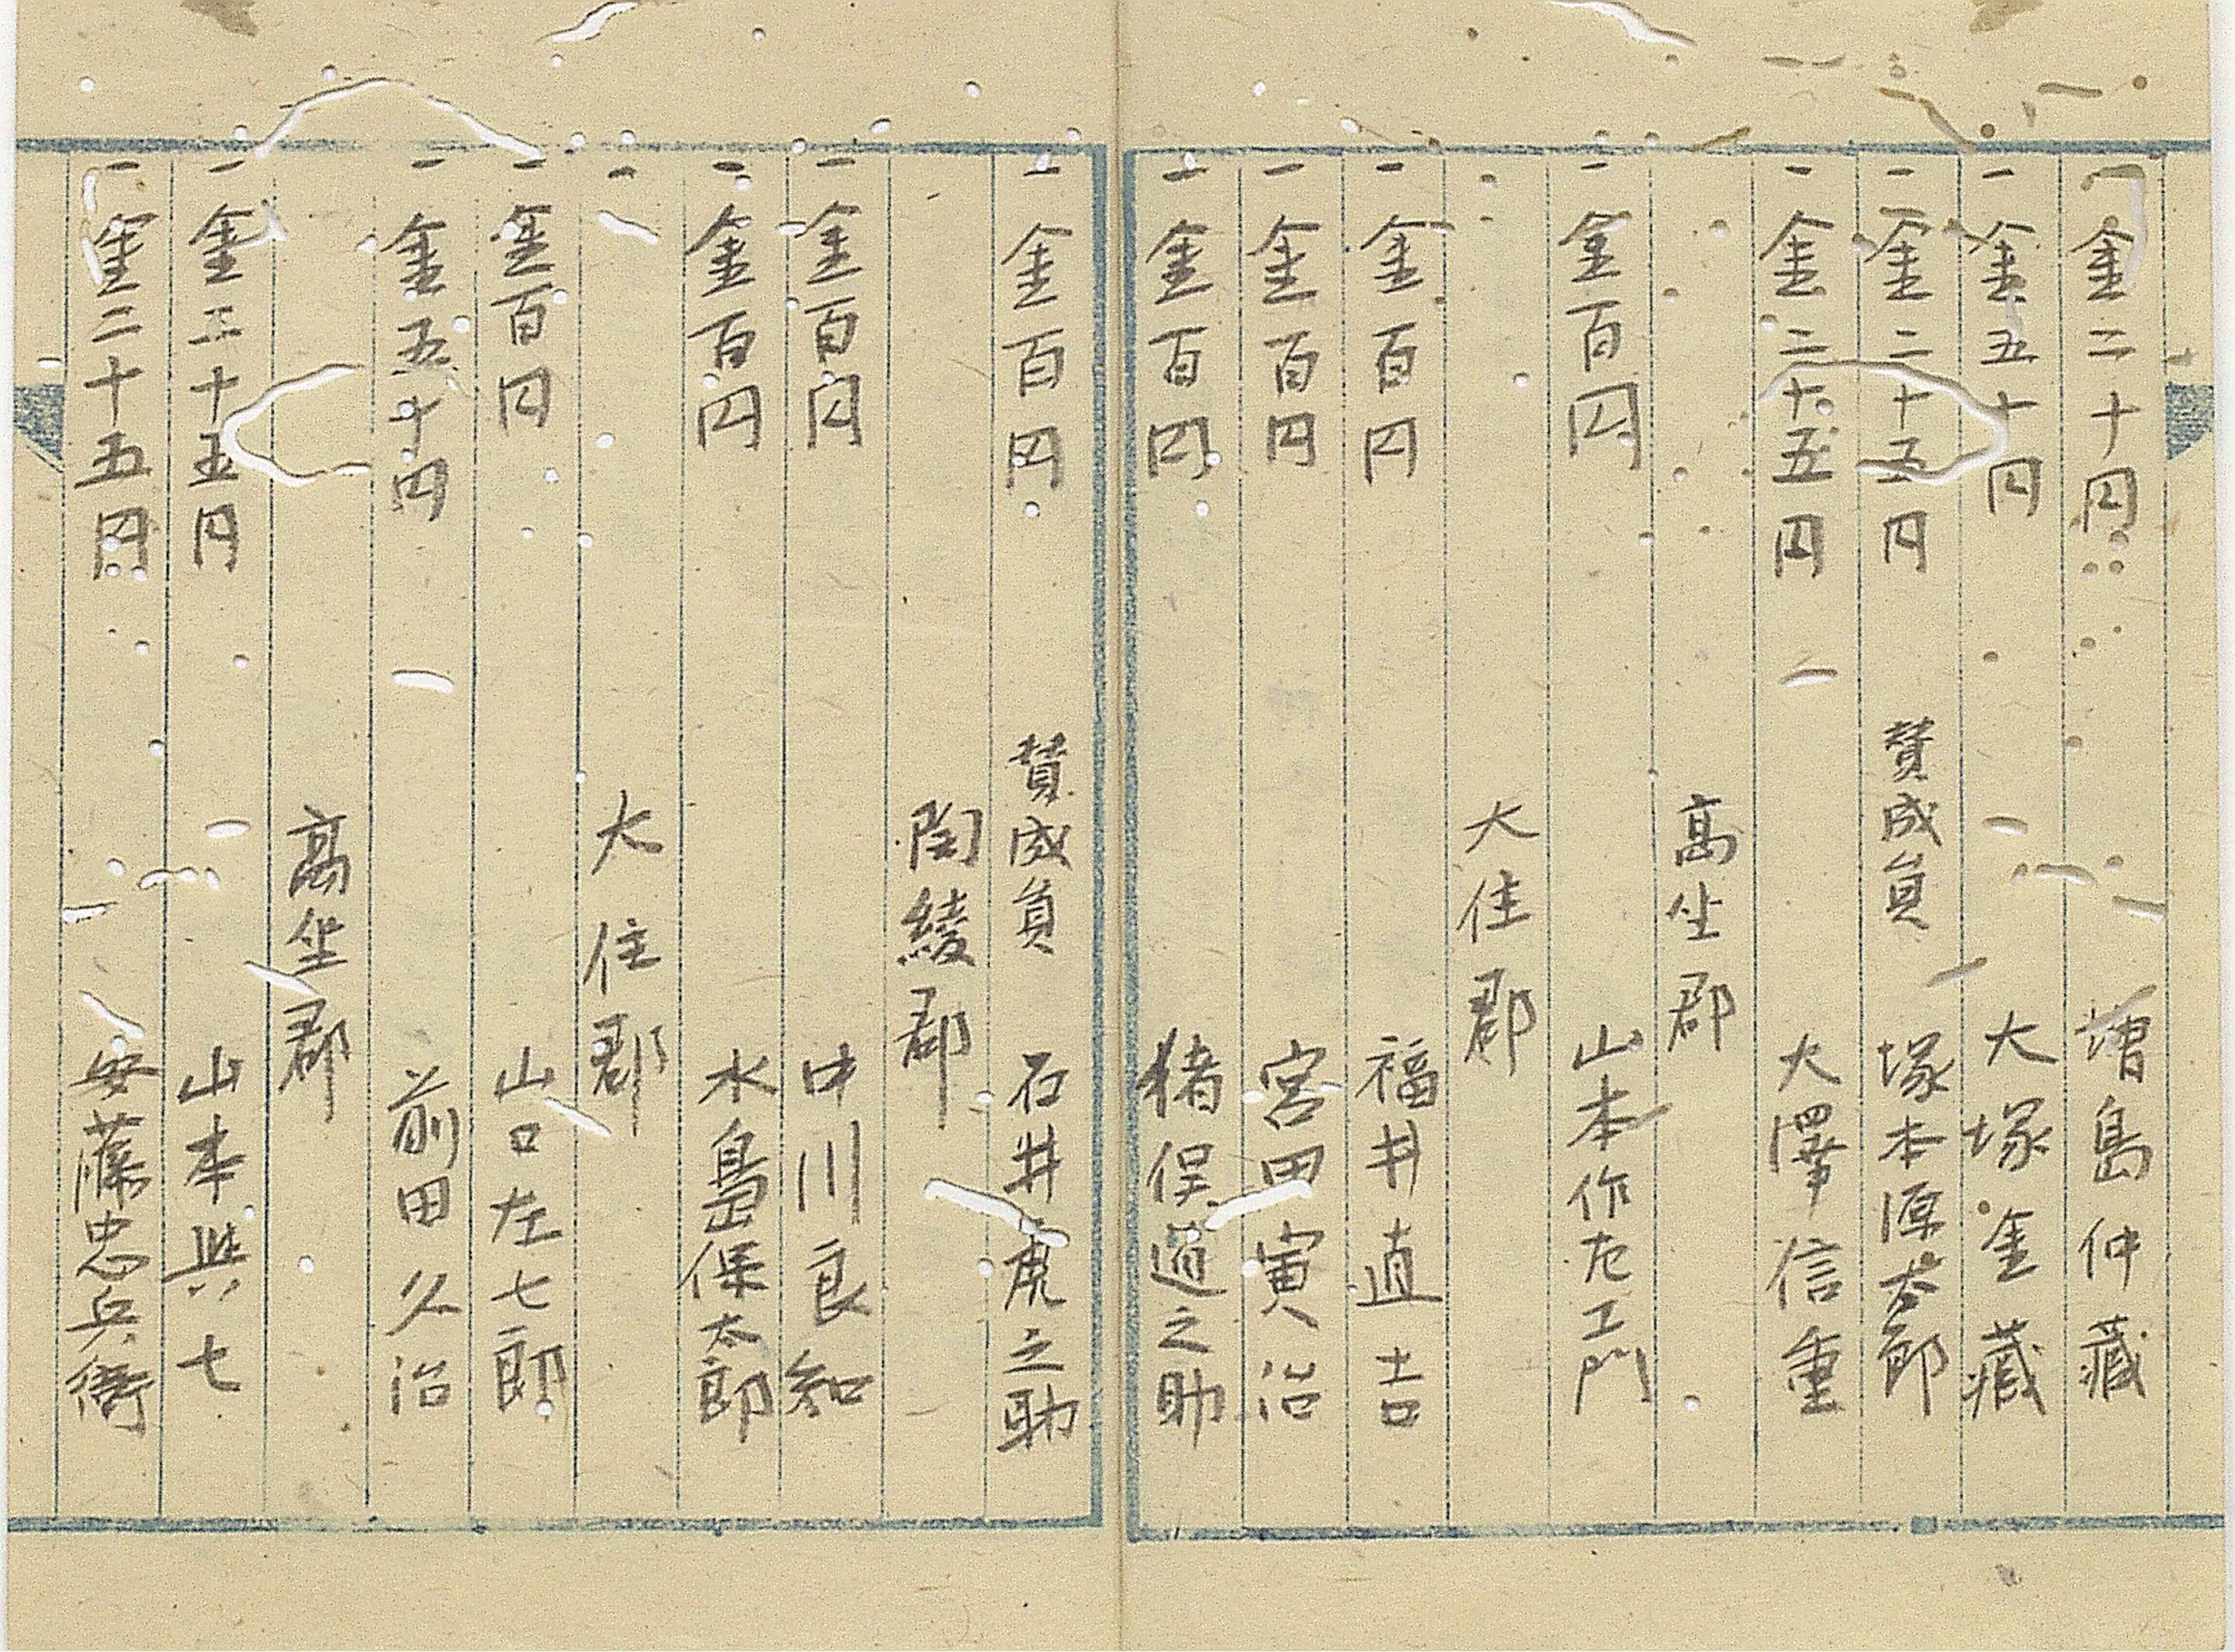 一金二十円 増島仲藏
一金五十円 大塚金藏
一金二十五円 賛成員 塚本源太郎
一金二十五円 大澤信重
高坐郡
一金百円 山本作左工門
大住郡
一金百円 福井直吉
一金百円 宮田寅治
一金百円 猪俣道之助
一金百円 賛成員 石井虎之助
陶綾郡
一金百円 中川良知
一金百円 水島保太郎
一 大住郡
一金百円 山口左七郎
一金五十円 前田久治
高坐郡
一金二十五円 山本與七
一金二十五円 安藤忠兵衛